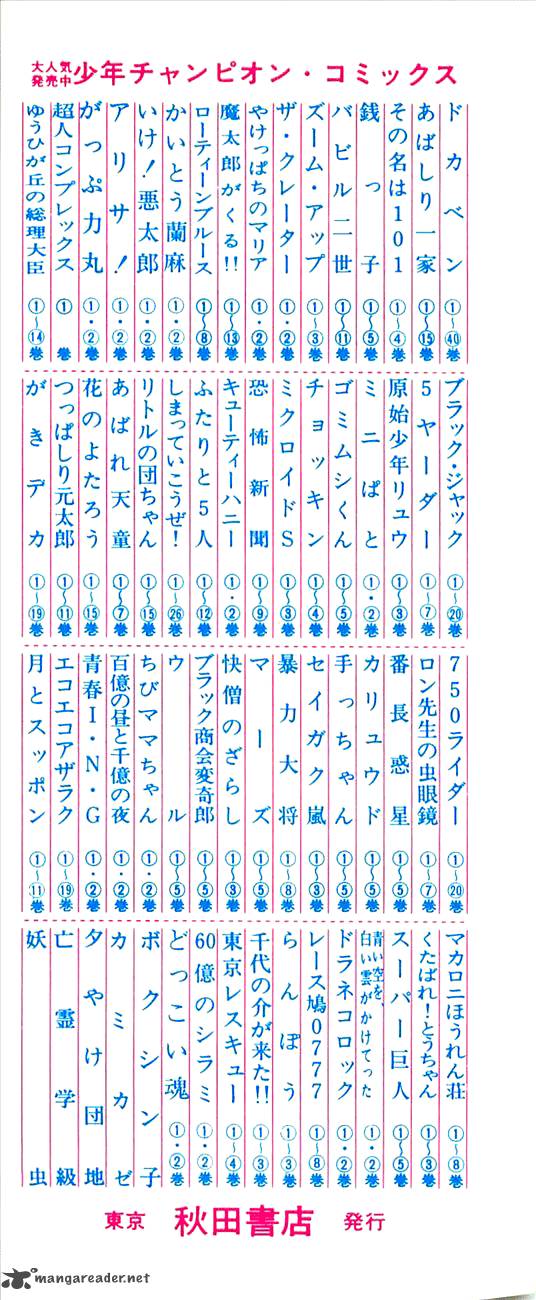 大人気発売中 少年チャンピオン・コミックス
ドカベン ①〜㊵巻
あばしり一家 ①〜⑮巻
その名は101 ①〜④巻
銭っ子 ①〜⑤巻
バビル二世 ①〜⑪巻
ズーム・アップ ①〜③巻
ザ・クレーター ①・②巻
やけっぱちのマリア ①・②巻
魔太郎がくる!! ①〜⑬巻
ローティーンブルース ①〜⑧巻
かいとう蘭麻 ①・②巻
いけ!悪太郎 ①・②巻
アリサ! ①・②巻
がっぷ力丸 ①・②巻
超人コンプレックス ① 巻
ゆうひが丘の総理大臣 ①〜⑭巻
ブラック・ジャック ①〜⑳巻
5ヤーダー ①〜⑦巻
原始少年リュウ ①〜③巻
ミニぱと ①・②巻
ゴミムシくん ①〜⑤巻
チョッキン ①〜④巻
ミクロイドS ①〜③巻
恐怖新聞 ①〜⑨巻
キューティーハニー ①・②巻
ふたりと5人 ①〜⑫巻
しまっていこうぜ! ①〜㉖巻
リトルの団ちゃん ①〜⑮巻
あばれ天童 ①〜⑦巻
花のよたろう ①〜⑮巻
つっぱしり元太郎 ①〜⑪巻
がきデカ ①〜⑲巻
750ライダー ①〜⑳巻
ロン先生の虫眼鏡 ①〜⑦巻
番長惑星 ①〜⑤巻
カリュウド ①〜⑤巻
手っちゃん ①・②巻
セイガク嵐 ①〜③巻
暴力大将 ①〜⑧巻
マーズ ①〜⑤巻
快僧のざらし ①〜③巻
ブラック商会変奇郎 ①〜⑤巻
ウル ①〜⑤巻
ちびママちゃん ①・②巻
百億の昼と千億の夜 ①・②巻
青春I・N・G ①・②巻
エコエコアザラク ①〜⑲巻
月とスッポン ①〜⑪巻
マカロニほうれん荘 ①〜⑧巻
くたばれ!とうちゃん ①〜③巻
スーパー巨人 ①〜⑤巻
青い空を、白い雲がかけてった ①・②巻
ドラネコロック ①・②巻
レース鳩0777 ①〜⑧巻
らんぽう ①〜③巻
千代の介が来た!! ①〜③巻
東京レスキュー ①〜④巻
60億のシラミ ①・②巻
どっこい魂 ①・②巻
ボクシン子
カミカゼ
夕やけ団地
亡霊学級
妖虫
東京 秋田書店 発行
mangareader.net